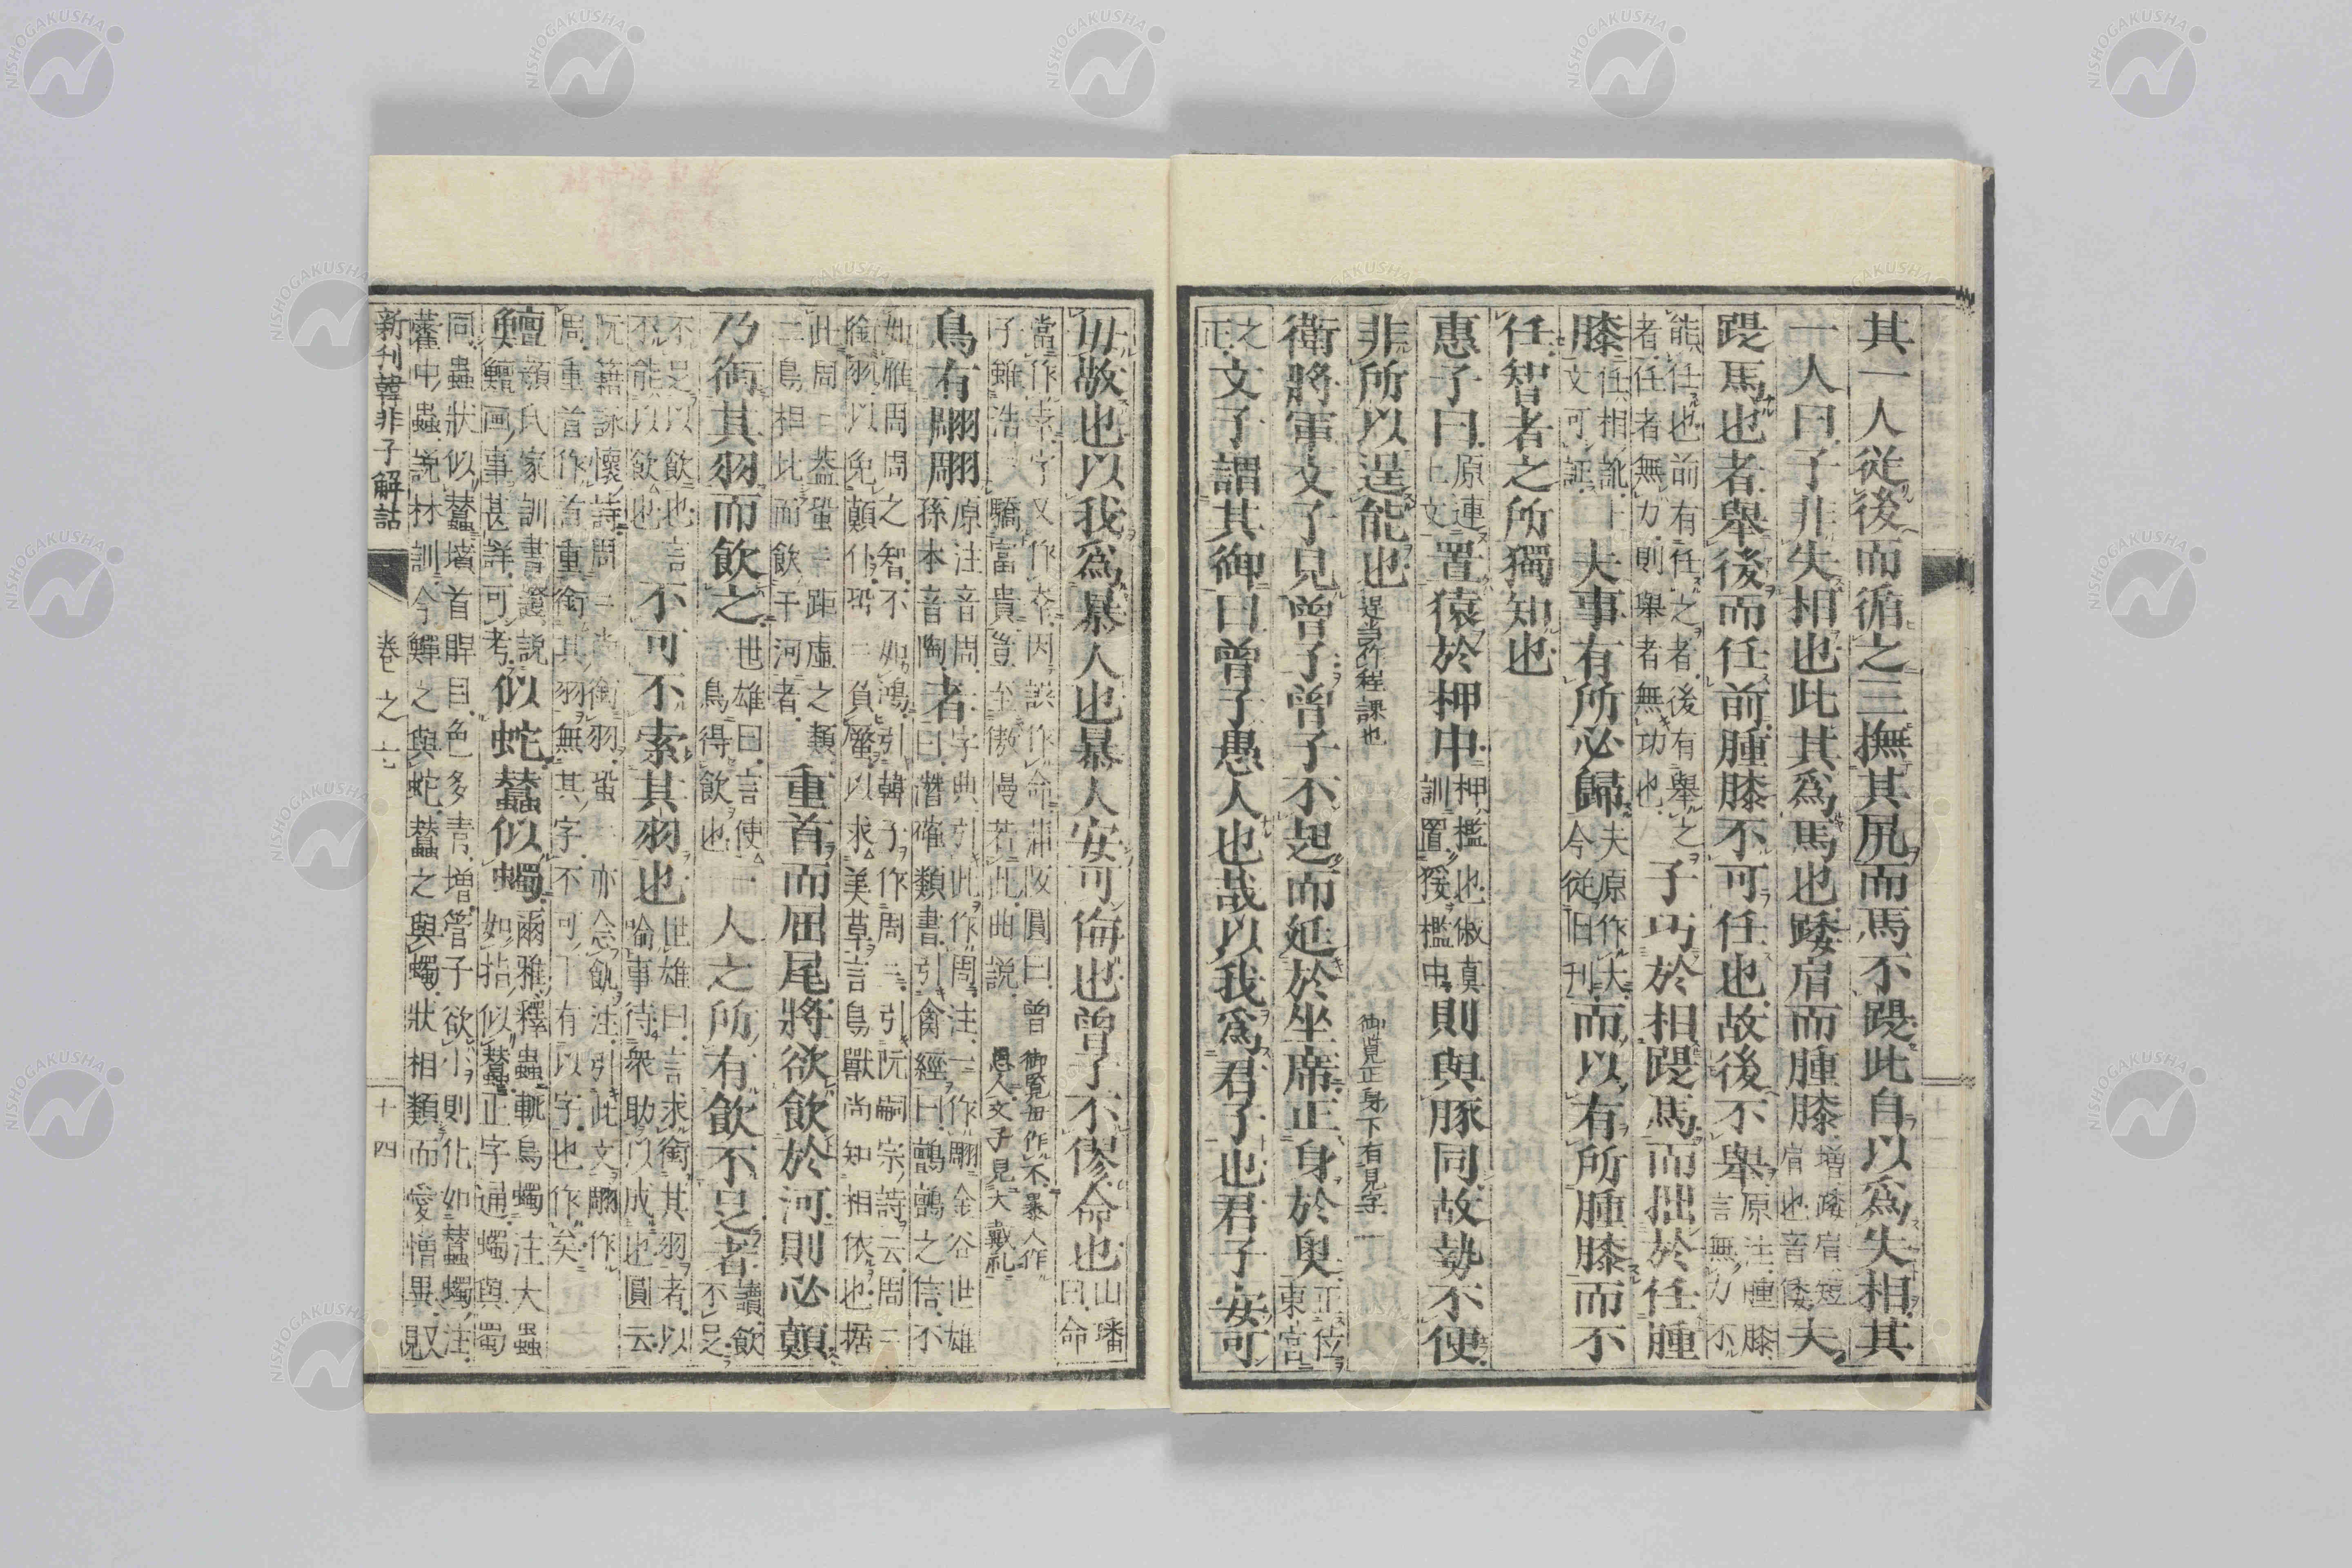 其一人従後而循之三撫其尻而馬不踶此自以爲失相其
一人曰子非失相也此其爲馬也踒肩而腫膝増踒肩短肩也音倭夫
踶馬也者舉後而任前腫膝不可任也故後不舉原注腫膝言無力不
能任也前有任之者後有舉之者任者無力則舉者無功也子巧於相踶馬而拙於任腫
膝任相訛下文可証夫事有所必歸夫原作大今従旧刊而以有所腫膝而不
任智者之所獨知也
惠子曰原連上文置猿於柙中柙檻也俶真訓置猨檻中則與豚同故勢不便
非所以逞能也逞当作程課也御覧正身下有見字
衛將軍文子見曾子曾子不起而延於坐席正身於奥正位東宮
之正文子謂其御曰曾子愚人也哉以我爲君子也君子安可
毋敬也以我爲暴人也暴人安可侮也曾子不僇命也山璠曰命
當作幸字又作夲因誤作命蒲阪圓曰曾子雖浩驕富貴豈至傲慢若此曲説御覧毋作不暴人作愚人文子見大戴礼
鳥有翢翢原注音周孫本音陶者字典引此作周注一作翢金谷世雄曰潛確類書引禽經曰鸛鸛之信不
如雁周周之智不如鴻引韓子作周引阮嗣宗詩云周二銜羽以免顛仆蛩二負蟨以求美草言鳥獸尚知相依也据
此周二蓋蛩距虛之類二鳥相比而飲于河者重首而屈尾將欲飲於河則必顛
乃銜其羽而飲之世雄曰言使一鳥得飲也人之所有飲不足者讀飲不足
不足以飲也言不能以飲也不可不索其羽也世雄曰言求銜其羽者以喻事待衆助以成也圓云
阮籍詠懷詩周二尚銜羽蛩二亦念飢注引此文翢作周重首作首重銜其羽無其字不可下有以字也作矣
鱣顔氏家訓書證説鱣画事甚詳可考似蛇蠶似蠋爾雅釋蟲蚅烏蠋注大蟲如指似蠶正字通蠋與蜀
同蟲状似蠶墳首睅目色多青増管子欲小則化如蠶蠋注藿中蟲説林訓今鱓之與蛇蠶之與蠋狀相類而愛憎異
新刊韓非子解詁 巻之六 十四